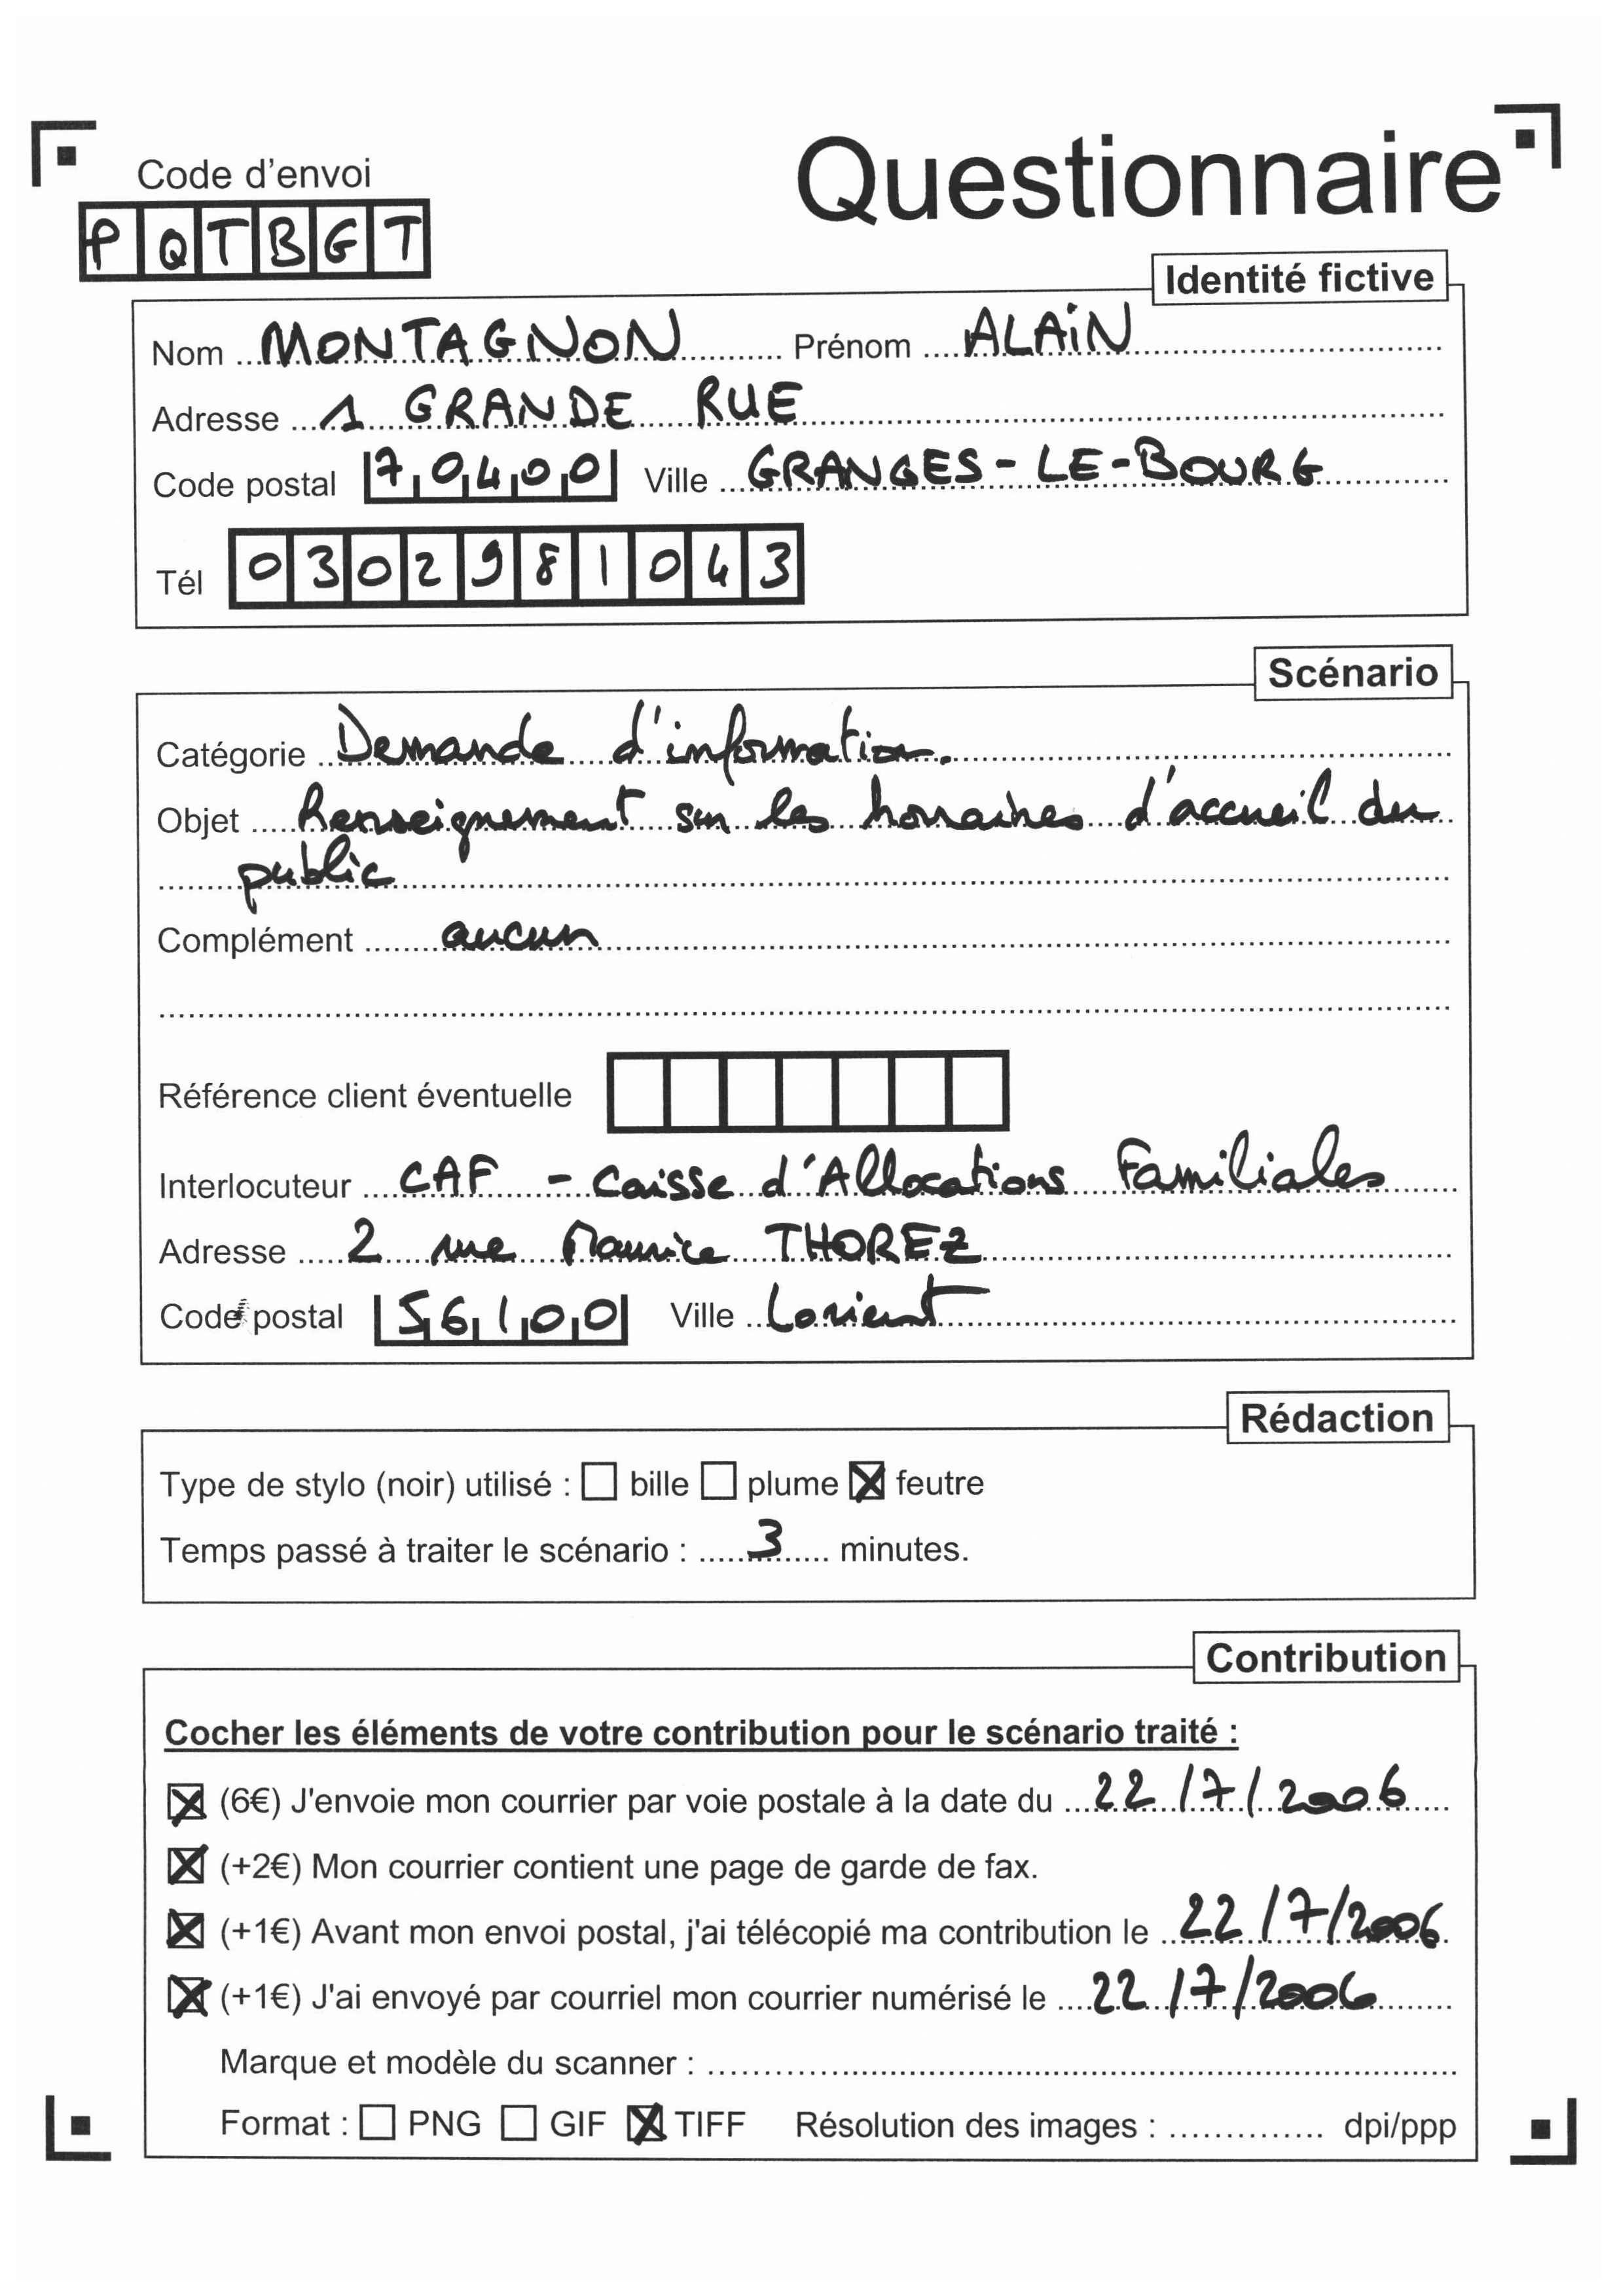 Code d'envoi
Questionnaire
PQTBGT
Identité fictive
Nom MONTAGNON Prénom ALAIN
Adresse 1 GRANDE RUE
Code postal 70400 Ville GRANGES-LE-BOURG
Tél 0302981043
Scénario
Catégorie Demande d'information.
Objet Renseignement sur les horraires d'accueil du
public
Complément aucun
Référence client éventuelle
Interlocuteur CAF - Caisse d'Allocations Familiales
Adresse 2 rue Maurice THOREZ
Code postal 56100 Ville Lorient
Rédaction
Type de stylo (noir) utilisé : ☐ bille ☐ plume ☒ feutre
Temps passé à traiter le scénario : 3 minutes.
Contribution
Cocher les éléments de votre contribution pour le scénario traité :
☒ (6€) J'envoie mon courrier par voie postale à la date du 22/7/2006
☒ (+2€) Mon courrier contient une page de garde de fax.
☒ (+1€) Avant mon envoi postal, j'ai télécopié ma contribution le 22/7/2006
☒ (+1€) J'ai envoyé par courriel mon courrier numérisé le 22/7/2006
Marque et modèle du scanner :
Format : ☐ PNG ☐ GIF ☒ TIFF Résolution des images : dpi/ppp